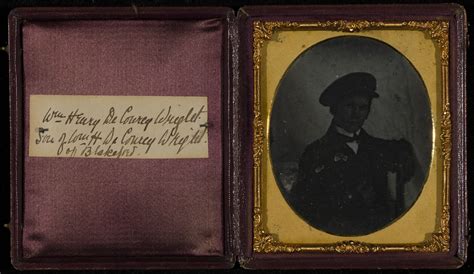 Wm Henry De Courcy Wright
Son of Wm H. De Courcy Wright
of Blakeford